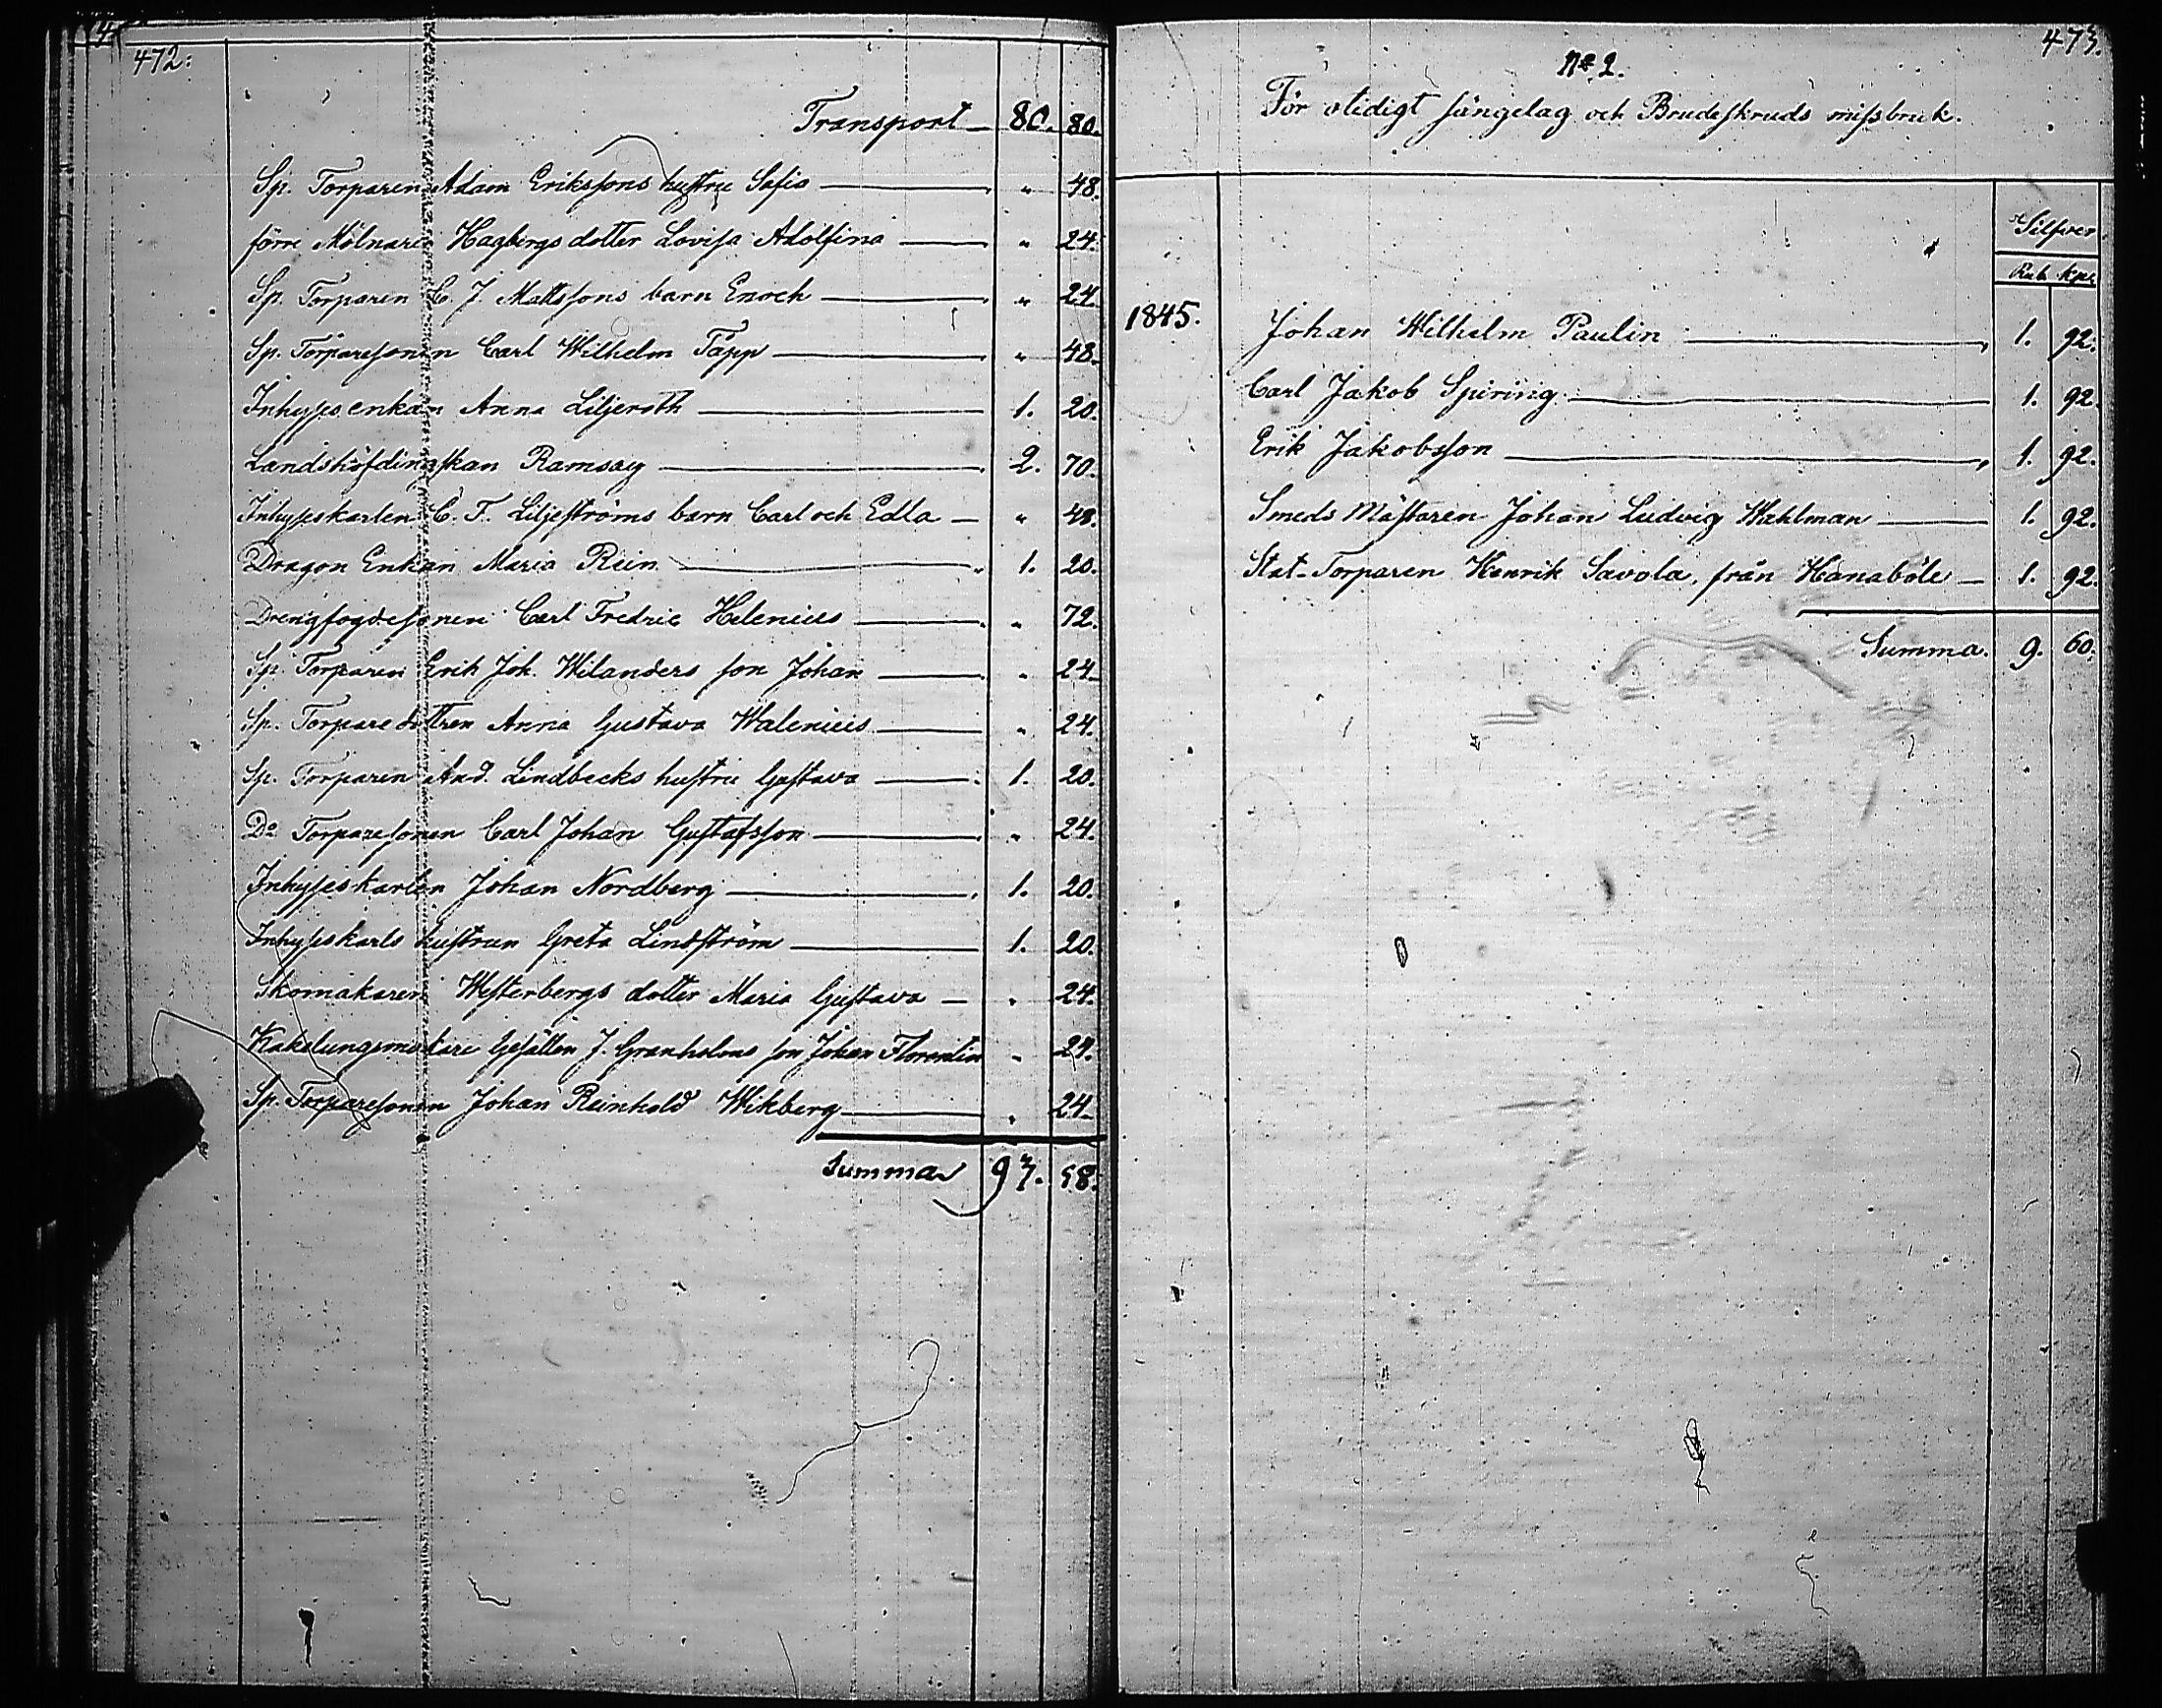 472:
Transport 80. 80.
Sp. Torparen Adam Erikssons hustru Sofia " 48.
förre Mölnaren Hagbergs dotter Lovisa Adolfina " 24.
Sp. Torparen C. J. Mattssons barn Enoch " 24.
Sp. Torparesonen Carl Wilhelm Täpp " 48.
Inhyses enkan Anna Liljeroth 1. 20.
Landshöfdingskan Ramsay 2. 70.
Inhyseskarlen C. F. Liljeströms barn Carl och Edla " 48.
Dragon Enkan Maria Rein 1. 20.
Drengfogdesonen Carl Fredric Helenius " 72.
Sp. Torparen Erik Joh. Wilanders son Johan " 24
Sp. Torpare dottren Anna Gustava Walenius " 24.
Sp. Torparen And. Lindbecks hustru Gustava 1. 20.
Do Torparesonen Carl Johan Gustafsson " 24.
Inhyseskarlen Johan Nordberg 1. 20.
Inhyseskarls hustrun Greta Lindström 1. 20.
Skomakaren Westerbergs dotter Maria Gustava " 24.
Kakelungsmakare Gesällen J. Granholms son Johan Florentin " 24.
Sp. Torparesonen Johan Reinhold Wikberg " 24
Summa 93. 58.
473.
No 2.
För otidigt sängelag och Brudeskruds missbruk.
Silfver
Rub. kpr
1845. Johan Wilhelm Paulin 1. 92.
Carl Jakob Spiring 1. 92.
Erik Jakobsson 1. 92.
Smeds Mästaren Johan Ludvig Wahlman 1. 92.
Stat-Torparen Henrik Savola, från Hanaböle 1. 92.
Summa. 9. 60.